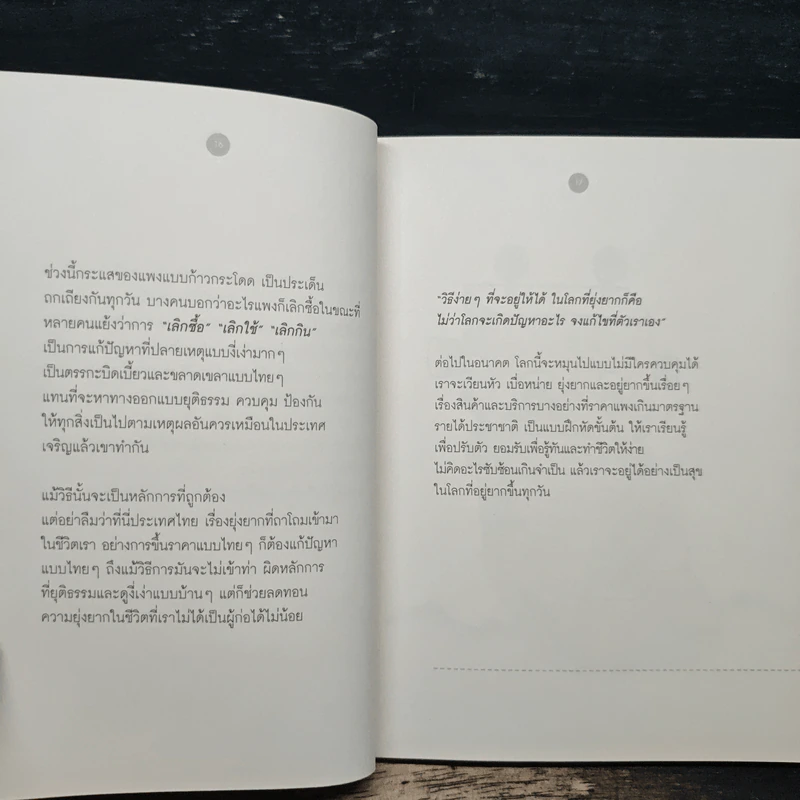 16
ช่วงนี้กระแสของแพงแบบก้าวกระโดด เป็นประเด็น
ถกเถียงกันทุกวัน บางคนบอกว่าอะไรแพงก็เลิกซื้อในขณะที่
หลายคนแย้งว่าการ “เลิกซื้อ” “เลิกใช้” “เลิกกิน”
เป็นการแก้ปัญหาที่ปลายเหตุแบบงี่เง่ามากๆ
เป็นตรรกะบิดเบี้ยวและขลาดเขลาแบบไทยๆ
แทนที่จะหาทางออกแบบยุติธรรม ควบคุม ป้องกัน
ให้ทุกสิ่งเป็นไปตามเหตุผลอันควรเหมือนในประเทศ
เจริญแล้วเขาทำกัน
แม้วิธีนั้นจะเป็นหลักการที่ถูกต้อง
แต่อย่าลืมว่าที่นี่ประเทศไทย เรื่องยุ่งยากที่ถาโถมเข้ามา
ในชีวิตเรา อย่างการขึ้นราคาแบบไทยๆ ก็ต้องแก้ปัญหา
แบบไทยๆ ถึงแม้วิธีการมันจะไม่เข้าท่า ผิดหลักการ
ที่ยุติธรรมและดูงี่เง่าแบบบ้านๆ แต่ก็ช่วยลดทอน
ความยุ่งยากในชีวิตที่เราไม่ได้เป็นผู้ก่อได้ไม่น้อย
17
“วิธีง่ายๆ ที่จะอยู่ให้ได้ ในโลกที่ยุ่งยากก็คือ
ไม่ว่าโลกจะเกิดปัญหาอะไร จงแก้ไขที่ตัวเราเอง”
ต่อไปในอนาคต โลกนี้จะหมุนไปแบบไม่มีใครควบคุมได้
เราจะเวียนหัว เบื่อหน่าย ยุ่งยากและอยู่ยากขึ้นเรื่อยๆ
เรื่องสินค้าและบริการบางอย่างที่ราคาแพงเกินมาตรฐาน
รายได้ประชาชาติ เป็นแบบฝึกหัดขั้นต้น ให้เราเรียนรู้
เพื่อปรับตัว ยอมรับเพื่อรู้ทันและทำชีวิตให้ง่าย
ไม่คิดอะไรซับซ้อนเกินจำเป็น แล้วเราจะอยู่ได้อย่างเป็นสุข
ในโลกที่อยู่ยากขึ้นทุกวัน